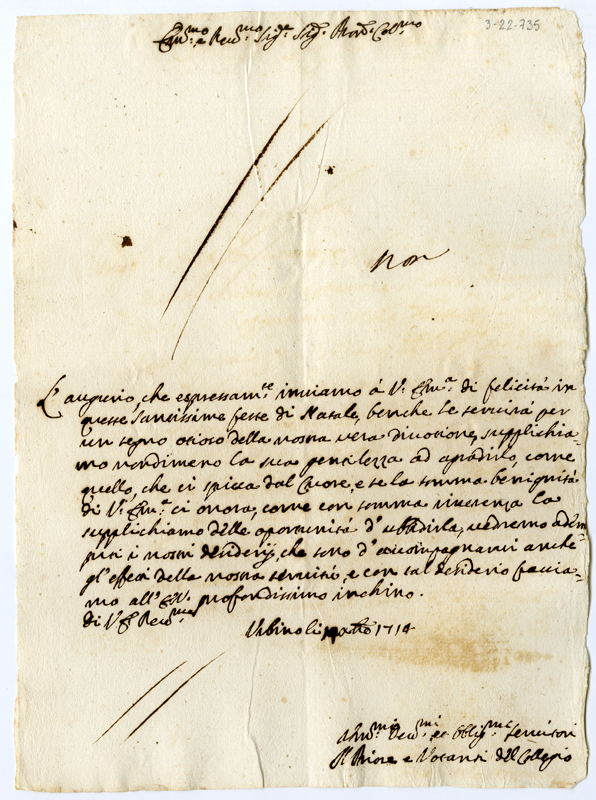 3-22-735
Em.mo e Rev.mo Sig.re Sig.r Pron. Col.mo
Non
L'augurio, che espressam.te inviamo á V. Em.a di felicitá in
queste Santissime feste di Natale, benche le servirá per
un segno otioso della nostra vera divotione, supplichia-
mo nondimeno la sua gentilezza ad agradirlo, come
quello, che ci spicca dal Cuore, e se la somma benignitá
di V. Em.a ci onora, come con somma riverenza la
supplichiamo delle oportunitá d'ubidirla, vedremo adem-
piti i nostri desiderij, che sono d'accompagnarvi anche
gl'effetti della nostra servitú, e con tal desiderio faccia-
mo all'Em.V. profondissimo inchino.
di V. Em. Rev.ma
Urbino li Xbre 1714
Um.mi Dev.mi et Oblig.mi Servitori
Il Priore e Votanti del Collegio